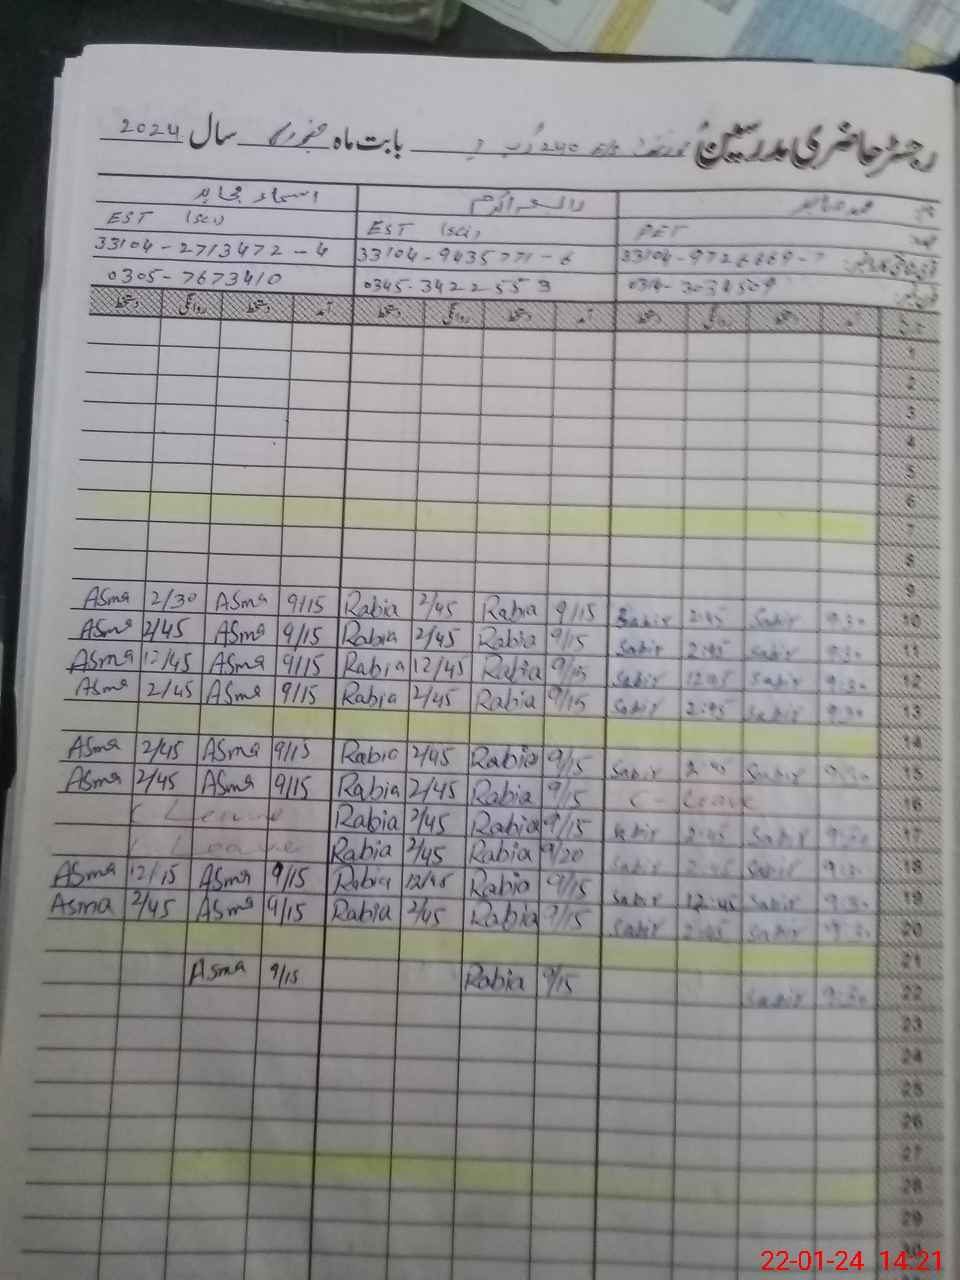 رجسٹر حاضری مدرسین بابت ماہ جنوری سال 2024
رابعہ اکرم
EST (sci) EST (sci) PET
33104-2713472-4 33104-9435771-6
0305-7673410 0345-3422553
دستخط روانگی دستخط آمد دستخط روانگی دستخط آمد دستخط روانگی دستخط آمد
1
2
3
4
5
6
7
8
9
ASma 2/30 ASma 9/15 Rabia 2/45 Rabia 9/15 Sabir 2:45 Sabir 9:30 10
ASma 2/45 ASma 9/15 Rabia 2/45 Rabia 9/15 Sabir 2:45 Sabir 9:30 11
ASma 12/45 ASma 9/15 Rabia 12/45 Rabia 9/15 Sabir 12:45 Sabir 9:30 12
ASma 2/45 ASma 9/15 Rabia 2/45 Rabia 9/15 Sabir 2:45 Sabir 9:30 13
14
ASma 2/45 ASma 9/15 Rabia 2/45 Rabia 9/15 Sabir 2:45 Sabir 9:30 15
ASma 2/45 ASma 9/15 Rabia 2/45 Rabia 9/15 C-Leave 16
C Leave Rabia 2/45 Rabia 9/15 Sabir 2:45 Sabir 9:30 17
C Leave Rabia 2/45 Rabia 9/20 Sabir 2:45 Sabir 9:30 18
ASma 12/15 ASma 9/15 Rabia 12/45 Rabia 9/15 Sabir 12:45 Sabir 9:30 19
Asma 2/45 ASma 9/15 Rabia 2/45 Rabia 9/15 Sabir 2:45 Sabir 9:30 20
21
ASma 9/15 Rabia 9/15 Sabir 9:30 22
23
24
25
26
27
28
29
30
22-01-24 14:21